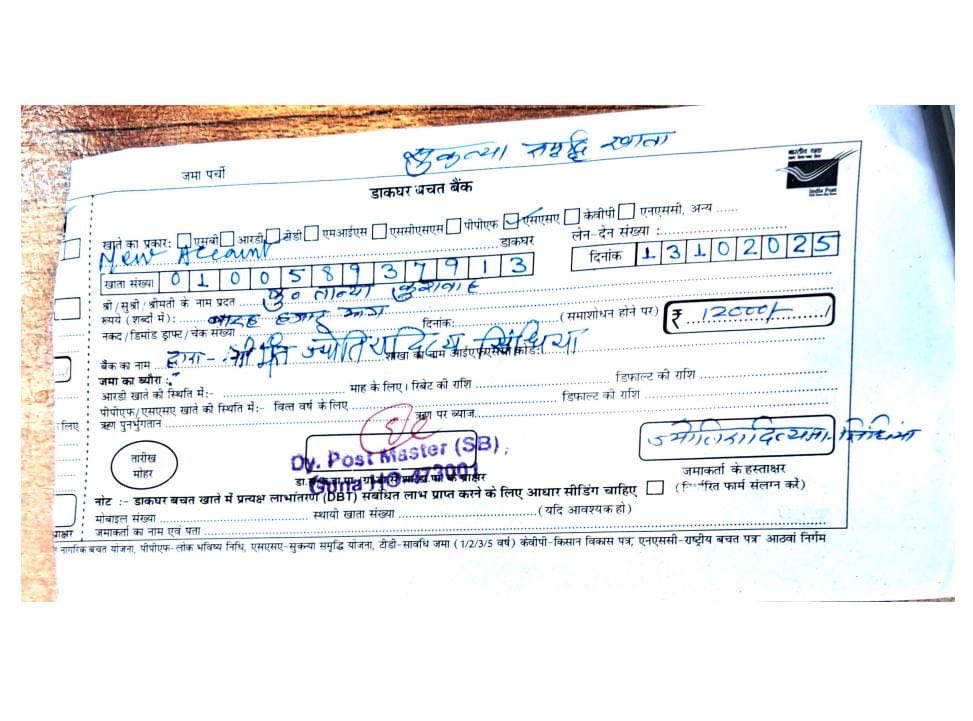 सुकन्या समृद्धि खाता
जमा पर्ची
डाकघर बचत बैंक
India Post
खाते का प्रकार: एसबी आरडी टीडी एमआईएस एससीएसएस पीपीएफ एसएसए केवीपी एनएससी, अन्य ......
New Account ...... डाकघर
लेन-देन संख्या :
खाता संख्या 010058937913
दिनांक 13102025
श्री/सुश्री/श्रीमती के नाम प्रदत्त कु० तान्या कुशवाह
रूपये (शब्दों में): बारह हजार मात्र
नकद/डिमांड ड्राफ्ट/चेक संख्या ...... दिनांक: ...... (समाशोधन होने पर) ₹ 12000/-
बैंक का नाम द्वारा - ज्योतिरादित्य सिंधिया
शाखा का नाम आईएफएससी कोड:
जमा का ब्यौरा :-
आरडी खाते की स्थिति में:- ...... माह के लिए। रिबेट की राशि ...... डिफाल्ट की राशि ......
पीपीएफ/एसएसए खाते की स्थिति में:- वित्त वर्ष के लिए ...... डिफाल्ट की राशि ......
लिए
ऋण पुनर्भुगतान ...... ऋण पर ब्याज ......
तारीख
मोहर
Dy. Post Master (SB),
Guna HO-473001
ज्योतिरादित्य सिंधिया
जमाकर्ता के हस्ताक्षर
नोट :- डाकघर बचत खाते में प्रत्यक्ष लाभांतरण (DBT) संबंधित लाभ प्राप्त करने के लिए आधार सीडिंग चाहिए (फार्म संलग्न करे)
मोबाइल संख्या ...... स्थायी खाता संख्या ...... (यदि आवश्यक हो)
जमाकर्ता का नाम एवं पता ......
नागरिक बचत योजना, पीपीएफ-लोक भविष्य निधि, एसएसए-सुकन्या समृद्धि योजना, टीडी-सावधि जमा (1/2/3/5 वर्ष) केवीपी-किसान विकास पत्र, एनएससी-राष्ट्रीय बचत पत्र आठवां निर्गम